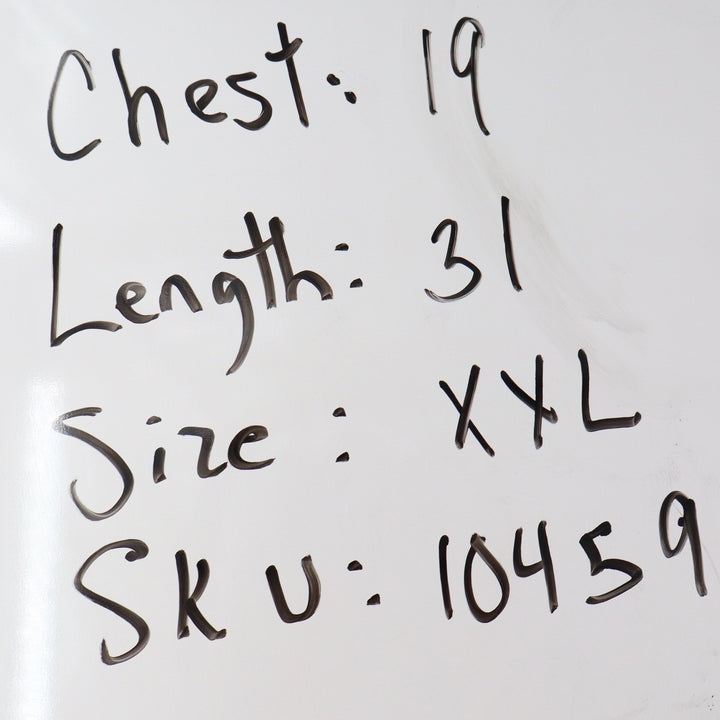 Chest: 19
Length: 31
Size: XXL
SKU: 10459